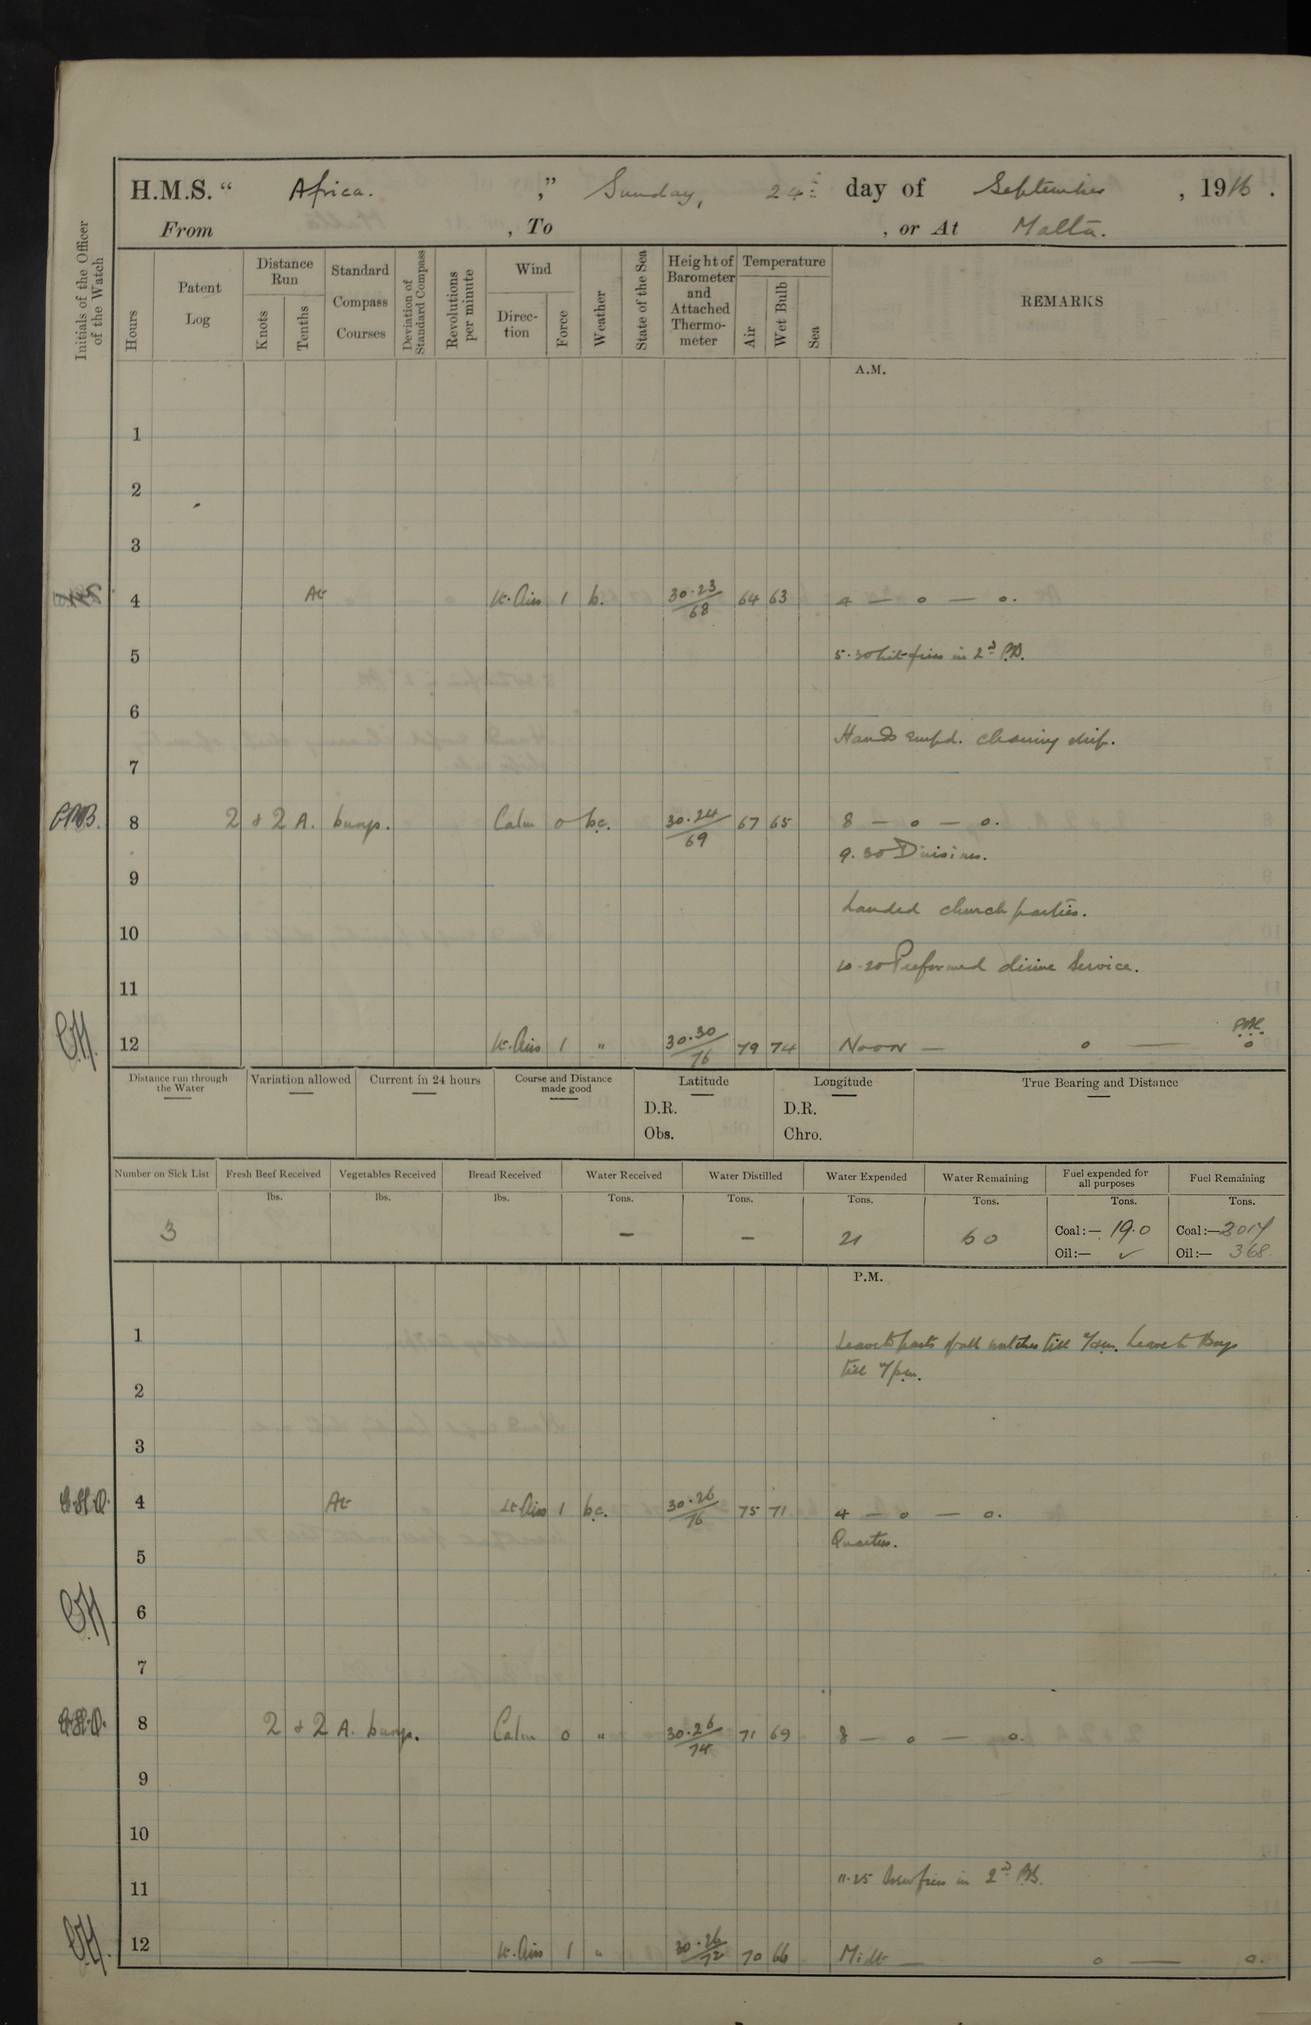 H.M.S. " Africa. ," Sunday, 24th day of September , 1916 .
From , To , or At Malta.
Initials of the Officer of the Watch
Hours
Patent Log
Distance Run
Knots
Tenths
Standard Compass Courses
Deviation of Standard Compass
Revolutions per minute
Wind
Direc-tion
Force
Weather
State of the Sea
Height of Barometer and Attached Thermo-meter
Temperature
Air
Wet Bulb
Sea
REMARKS
A.M.
1
2
3
4 At Lt. Airs 1 b. 30.23/68 64 63 4 — o — o.
5 5.30 Lit fires in 2nd P.B.
6
Hands empd. cleaning ship.
7
8 2 & 2 A. buoys. Calm 0 bc. 30.24/69 67 65 8 — o — o.
9.30 Divisions.
9
Landed church parties.
10
10.20 Preformed divine Service.
11
12 Lt. Airs 1 " 30.30/76 79 74 Noon — o — o
Distance run through the Water
Variation allowed
Current in 24 hours
Course and Distance made good
Latitude
D.R.
Obs.
Longitude
D.R.
Chro.
True Bearing and Distance
Number on Sick List Fresh Beef Received Vegetables Received Bread Received Water Received Water Distilled Water Expended Water Remaining Fuel expended for all purposes Fuel Remaining
lbs. lbs. lbs. Tons. Tons. Tons. Tons. Tons. Tons.
3 — — 21 60 Coal:— 19.0 Coal:—
Oil:— ✓ Oil:— 368
P.M.
1 Leave to parts of all watches till 7am. Leave to Boys
till 7pm.
2
3
4 At Lt Airs 1 bc. 30.26/76 75 71 4 — o — o.
Quarters.
5
6
7
8 2 & 2 A. buoys. Calm 0 " 30.26/74 71 69 8 — o — o.
9
10
11.25 Drew fires in 2nd P.B.
11
12 Lt. Airs 1 " 30.26/72 70 66 Midt — o — o.